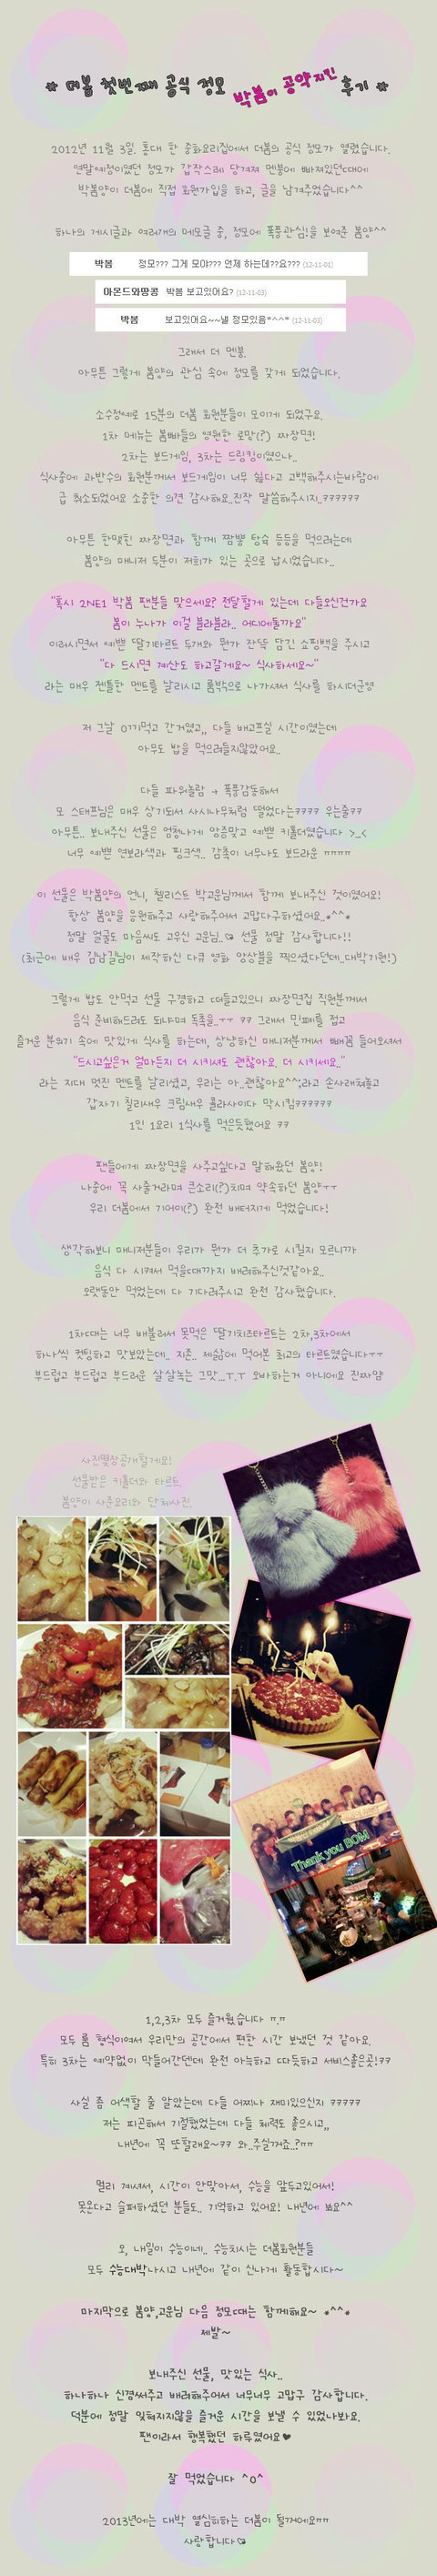 * 더봄 첫번째 공식 정모 박봄이 공약지킨 후기 *
2012년 11월 3일. 홍대 한 중화요리집에서 더봄의 공식 정모가 열렸습니다.
연말예정이였던 정모가 갑작스레 당겨져 멘붕에 빠져있던때에
박봄양이 더봄에 직접 회원가입을 하고, 글을 남겨주었습니다^^
하나의 게시글과 여러개의 메모글 중, 정모에 폭풍관심!을 보여준 봄양^^
박봄 정모??? 그게 모야??? 언제 하는데??요??? (12-11-01)
아몬드와땅콩 박봄 보고있어요? (12-11-03)
박봄 보고있어요~~낼 정모있음*^^* (12-11-03)
그래서 더 멘붕.
아무튼 그렇게 봄양의 관심 속에 정모를 갖게 되었습니다.
소수정예로 15분의 더봄 회원분들이 모이게 되었구요.
1차 메뉴는 봄빠들의 영원한 로망(?) 짜장면!
2차는 보드게임, 3차는 드링킹이였으나..
식사중에 과반수의 회원분께서 보드게임이 너무 싫다고 고백해주시는바람에
급 취소되었어요 소중한 의견 감사해요..진작 말씀해주시지..ㅋㅋㅋㅋㅋㅋ
아무튼 한맺힌 짜장면과 함께 짬뽕 탕숙 등등을 먹으려는데
봄양의 매니저 두분이 저희가 있는 곳으로 납시었습니다..
"혹시 2NE1 박봄 팬분들 맞으세요? 전달할게 있는데 다들오신건가요
봄이 누나가 이걸 블라블라.. 어디에둘까요"
이러시면서 예쁜 딸기타르트 두개와 뭔가 잔뜩 담긴 쇼핑백을 주시고
"다 드시면 계산도 하고갈게요~ 식사하세요~"
라는 매우 젠틀한 멘트를 날리시고 룸밖으로 나가셔서 식사를 하시더군영
저 그날 0끼먹고 간거였고,, 다들 배고프실 시간이였는데
아무도 밥을 먹으려들지않았어요..
다들 파워놀람 → 폭풍감동해서
모 스태프님은 매우 상기되서 사시나무처럼 떨었다는ㅋㅋㅋㅋ 우는줄ㅋㅋ
아무튼.. 보내주신 선물은 엄청나게 앙증맞고 예쁜 키홀더였습니다 >_<
너무 예쁜 연보라색과 핑크색.. 감촉이 너무나도 보드라운 ㅠㅠㅠㅠ
이 선물은 박봄양의 언니, 첼리스트 박고운님께서 함께 보내주신 것이였어요!
항상 봄양을 응원해주고 사랑해주어서 고맙다구하셨어요..*^^*
정말 얼굴도 마음씨도 고우신 고운님..♡ 선물 정말 감사합니다!!
(최근에 배우 김남길님이 제작하신 다큐 영화 앙상블을 찍으셨다던데..대박기원!)
그렇게 밥도 안먹고 선물 구경하고 떠들고있으니 짜장면집 직원분께서
음식 준비해드려도 되냐며 독촉을..ㅜㅜ ㅋㅋ 그래서 민폐를 접고
즐거운 분위기 속에 맛있게 식사를 하는데, 상냥하신 매니저분께서 빼꼼 들어오셔서
"드시고싶은거 얼마든지 더 시키셔도 괜찮아요. 더 시키세요.."
라는 지대 멋진 멘트를 날리셨고, 우리는 아..괜찮아요^^;라고 손사래쳐놓고
갑자기 칠리새우 크림새우 콜라사이다 막시킴ㅋㅋㅋㅋㅋㅋ
1인 1요리 1식사를 먹은듯했어요 ㅋㅋ
팬들에게 짜장면을 사주고싶다고 말해왔던 봄양!
나중에 꼭 사줄거라며 큰소리(?)치며 약속하던 봄양ㅜㅜ
우리 더봄에서 기어이(?) 완전 배터지게 먹었습니다!
생각해보니 매니저분들이 우리가 뭔가 더 추가로 시킬지 모르니까
음식 다 시켜서 먹을때까지 배려해주신것같아요..
오랫동안 먹었는데 다 기다려주시고 완전 감사했습니다.
1차때는 너무 배불러서 못먹은 딸기치즈타르트는 2차,3차에서
하나씩 컷팅하고 맛보았는데.. 지존.. 제삶에 먹어본 최고의 타르트였습니다ㅜㅜ
부드럽고 부드럽고 부드러운 살살녹는 그맛...T.T 오바하는거 아니에요 진짜얌
사진몇장공개할게요!
선물받은 키홀더와 타르트
봄양이 사준요리와 단체사진.
Thank you BOM
1,2,3차 모두 즐거웠습니다 ㅠ.ㅠ
모두 룸 형식이여서 우리만의 공간에서 편한 시간 보냈던 것 같아요.
특히 3차는 예약없이 막들어간덴데 완전 아늑하고 따듯하고 서비스좋은곳!ㅋㅋ
사실 좀 어색할 줄 알았는데 다들 어찌나 재미있으신지 ㅋㅋㅋㅋㅋ
저는 피곤해서 기절했었는데 다들 체력도 좋으시고,,
내년에 꼭 또할래요~ㅋㅋ 와..주실거죠..?ㅠㅠ
멀리 계셔서, 시간이 안맞아서, 수능을 앞두고있어서!
못온다고 슬퍼하셨던 분들도.. 기억하고 있어요! 내년에 뵈요^^
오, 내일이 수능이네.. 수능치시는 더봄회원분들
모두 수능대박나시고 내년에 같이 신나게 활동합시다~
마지막으로 봄양,고운님 다음 정모때는 함께해요~ *^^*
제발~
보내주신 선물, 맛있는 식사..
하나하나 신경써주고 배려해주어서 너무너무 고맙구 감사합니다.
덕분에 정말 잊혀지지않을 즐거운 시간을 보낼 수 있었나봐요.
팬이라서 행복했던 하루였어요♥
잘 먹었습니다 ^0^
2013년에는 대박 열심히하는 더봄이 될거에요ㅠㅠ
사랑합니다♡